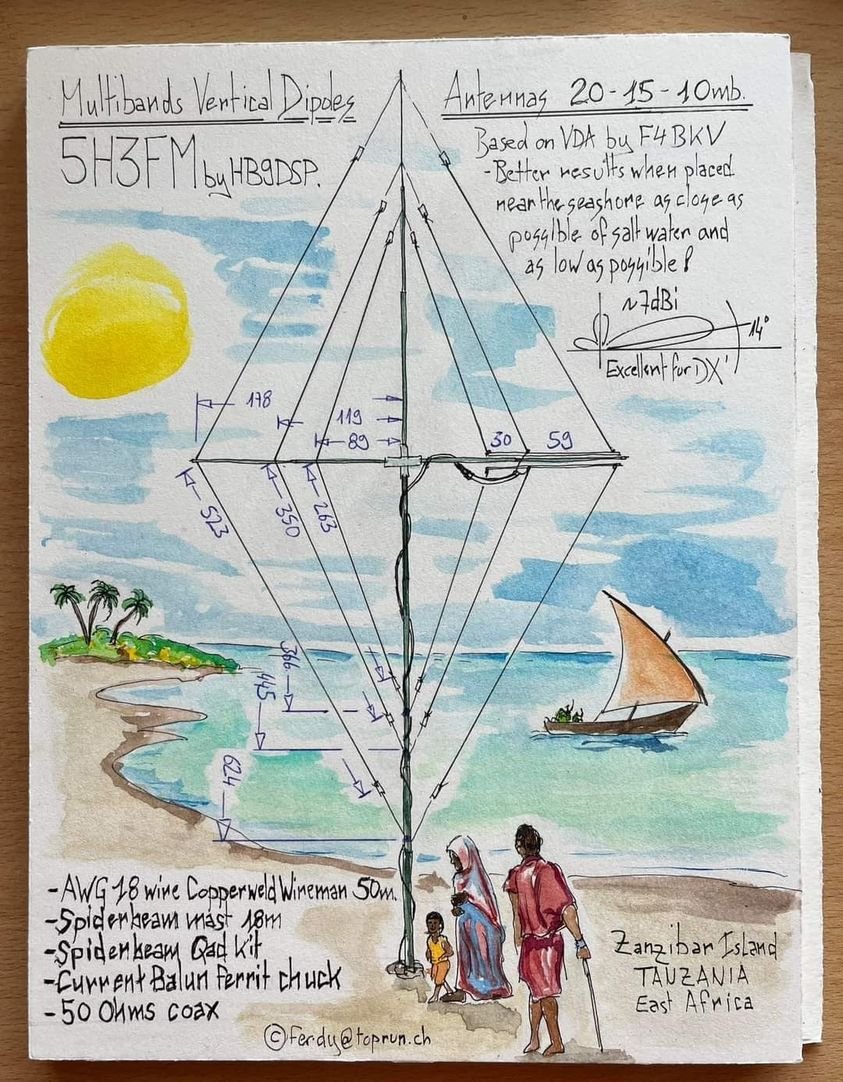 Multibands Vertical Dipoles
Antennas 20-15-10mb.
5H3FM by HB9DSP.
Based on VDA by F4BKV
- Better results when placed
near the seashore as close as
possible of salt water and
as low as possible!
~7dBi
14°
Excellent for DX'
178
119
89
30
59
523
350
263
366
445
624
- AWG 18 wire Copperweld Wireman 50m.
- Spiderbeam mast 18m
- Spiderbeam Qad kit
- Current Balun ferrit chuck
- 50 Ohms coax
Zanzibar Island
TANZANIA
East Africa
© Ferdy@toprun.ch